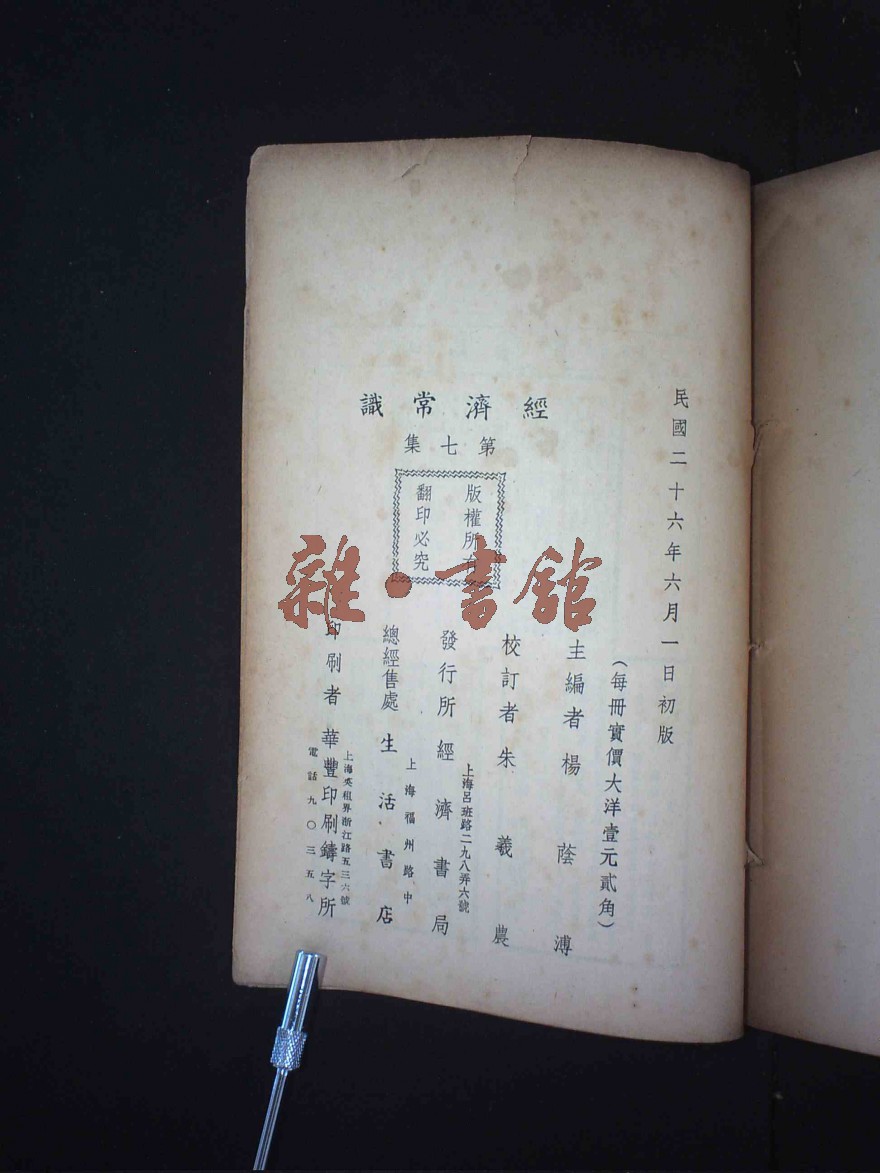 民國二十六年六月一日初版
經濟常識
第七集
版權所有
翻印必究
(每冊實價大洋壹元貳角)
主編者 楊蔭溥
校訂者 朱羲農
上海呂班路二九八弄六號
發行所 經濟書局
上海福州路中
總經售處 生活書店
上海英租界浙江路五三六號
印刷者 華豐印刷鑄字所
電話九〇三五八
雜·書館